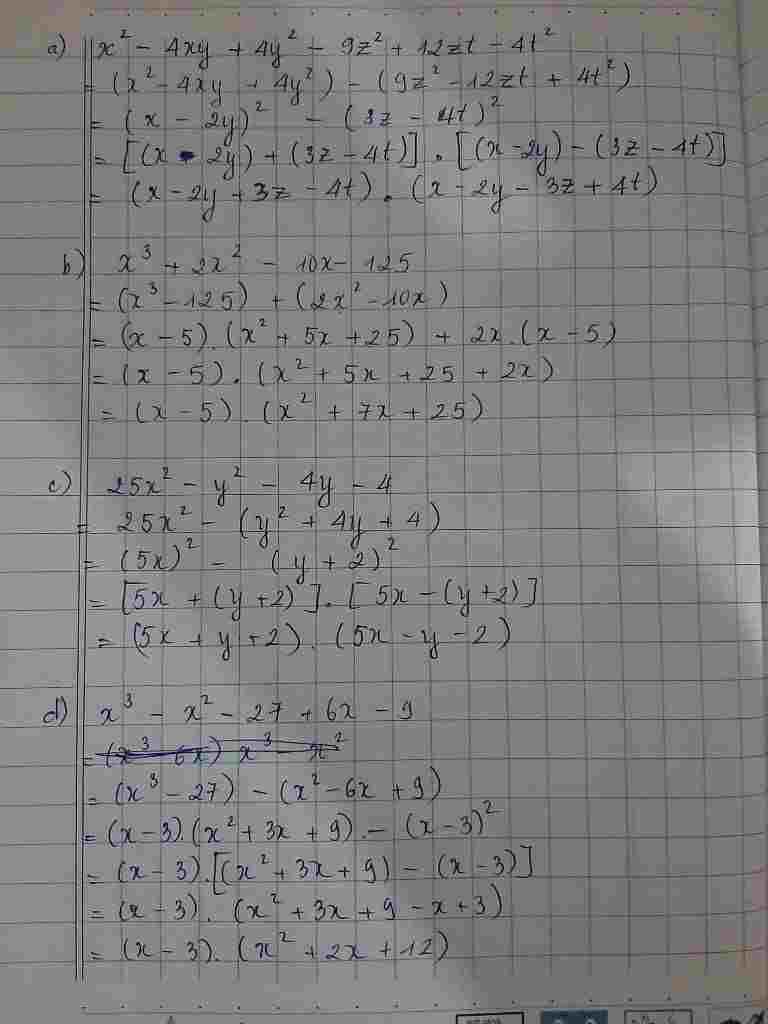 a) x² - 4xy + 4y² - 9z² + 12zt - 4t²
= (x² - 4xy + 4y²) - (9z² - 12zt + 4t²)
= (x - 2y)² - (3z - 4t)²
= [(x - 2y) + (3z - 4t)] . [(x - 2y) - (3z - 4t)]
= (x - 2y + 3z - 4t) . (x - 2y - 3z + 4t)
b) x³ + 2x² - 10x - 125
= (x³ - 125) + (2x² - 10x)
= (x - 5) . (x² + 5x + 25) + 2x . (x - 5)
= (x - 5) . (x² + 5x + 25 + 2x)
= (x - 5) . (x² + 7x + 25)
c) 25x² - y² - 4y - 4
= 25x² - (y² + 4y + 4)
= (5x)² - (y + 2)²
= [5x + (y + 2)] . [5x - (y + 2)]
= (5x + y + 2) . (5x - y - 2)
d) x³ - x² - 27 + 6x - 9
= (x³ 6x) x³ - x²
= (x³ - 27) - (x² - 6x + 9)
= (x - 3) . (x² + 3x + 9) - (x - 3)²
= (x - 3) . [(x² + 3x + 9) - (x - 3)]
= (x - 3) . (x² + 3x + 9 - x + 3)
= (x - 3) . (x² + 2x + 12)